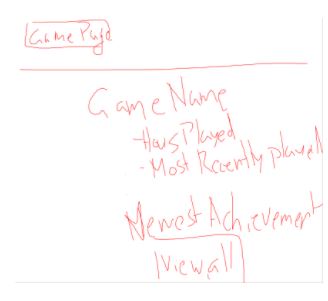 Game Page
Game Name
-Hours Played
-Most Recently played
Newest Achievement
View all